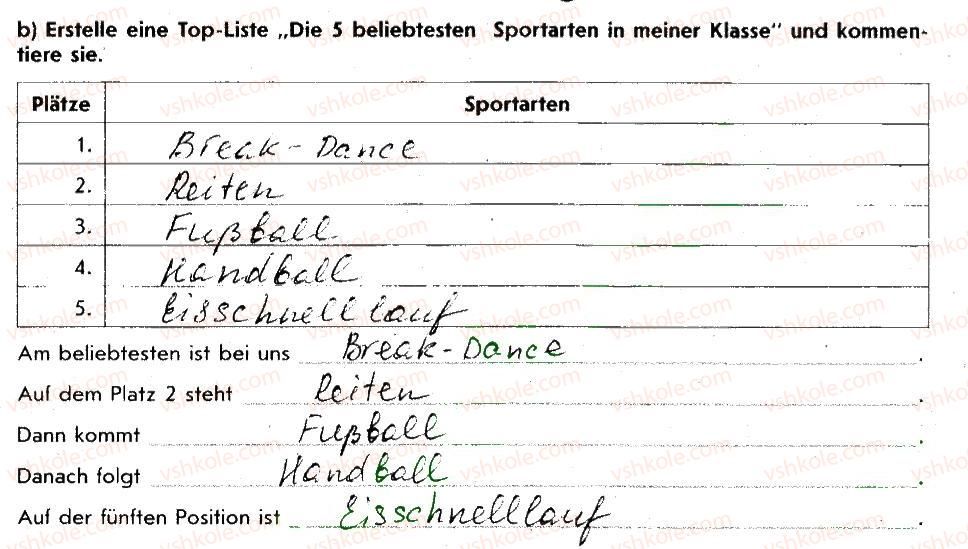 b) Erstelle eine Top-Liste „Die 5 beliebtesten Sportarten in meiner Klasse“ und kommen-
tiere sie.
Plätze Sportarten
1. Break-Dance
2. Reiten
3. Fußball
4. Handball
5. Eisschnelllauf
Am beliebtesten ist bei uns Break-Dance.
Auf dem Platz 2 steht Reiten.
Dann kommt Fußball.
Danach folgt Handball.
Auf der fünften Position ist Eisschnelllauf.